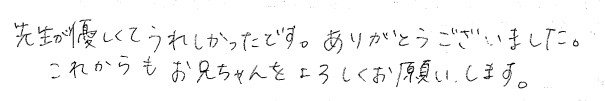 先生が優しくてうれしかったです。ありがとうございました。
これからもお兄ちゃんをよろしくお願いします。